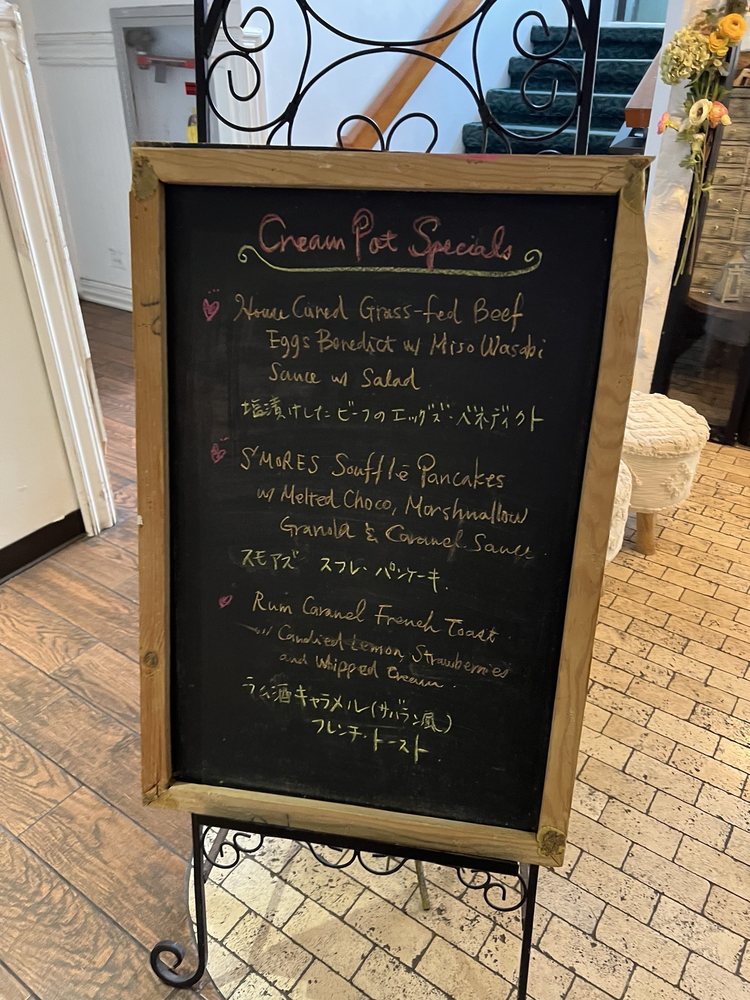 Cream Pot Specials
House Cured Grass-fed Beef
Eggs Benedict w/ Miso Wasabi
Sauce w/ Salad
塩漬けした ビーフの エッグズ・ベネディクト
S'MORES Soufflé Pancakes
w/ Melted Choco, Marshmallow
Granola & Caramel Sauce
スモアズ スフレ・パンケーキ
Rum Caramel French Toast
w/ Candied Lemon, Strawberries
and Whipped Cream.
ラム酒キャラメル(サバラン風)
フレンチ・トースト